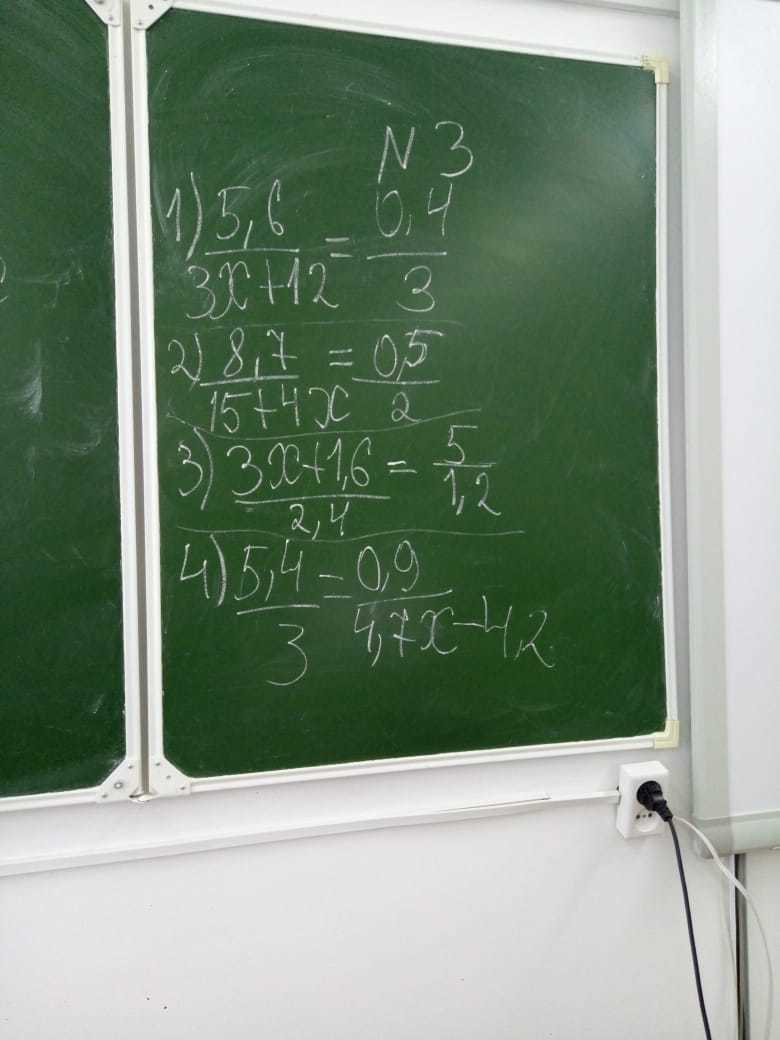 N 3
1) 5,6 / 3x+12 = 0,4 / 3
2) 8,7 / 15+4x = 0,5 / 2
3) 3x+1,6 / 2,4 = 5 / 1,2
4) 5,4 / 3 = 0,9 / 4,7x-4,2